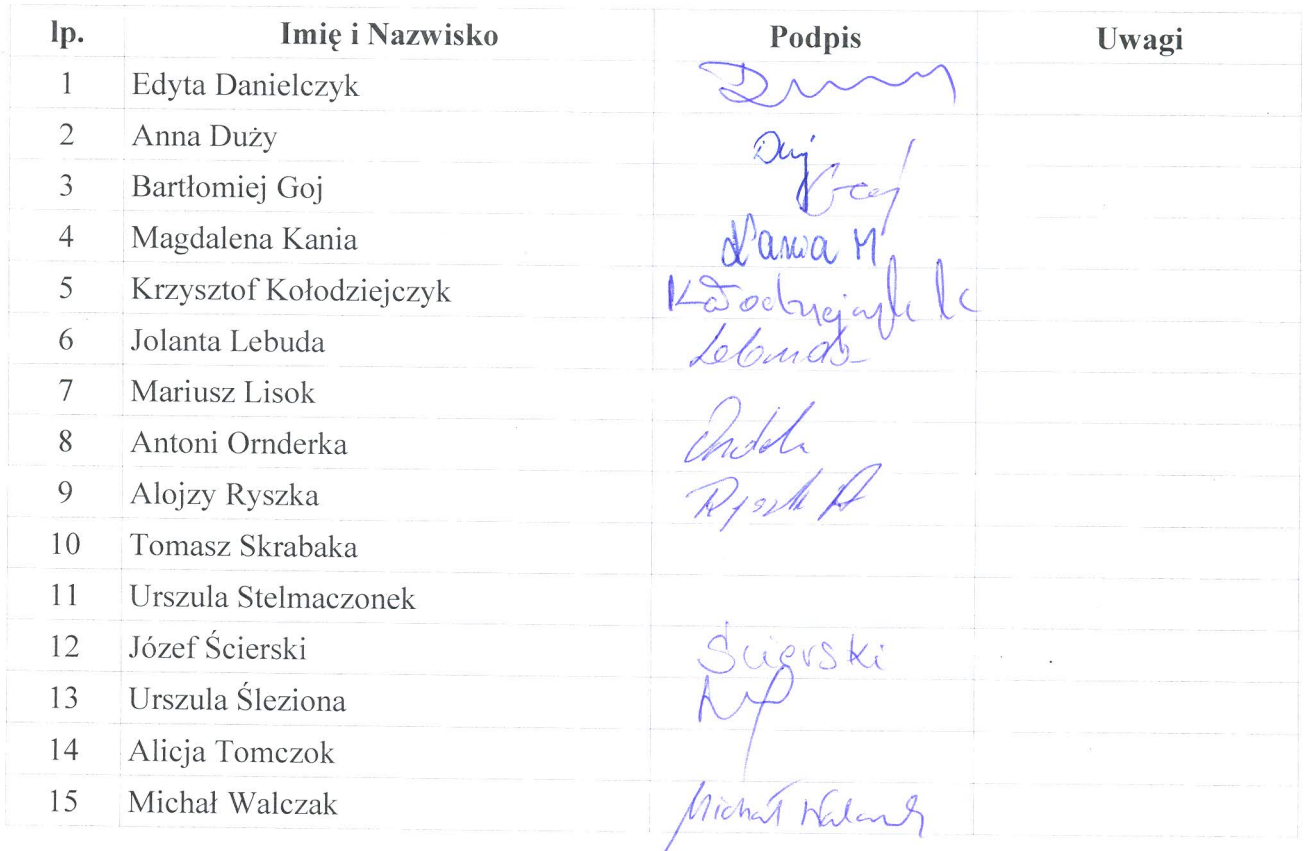 lp. Imię i Nazwisko Podpis Uwagi
1 Edyta Danielczyk
2 Anna Duży
3 Bartłomiej Goj
4 Magdalena Kania Kania M
5 Krzysztof Kołodziejczyk Kołodziejczyk K
6 Jolanta Lebuda Lebuda
7 Mariusz Lisok
8 Antoni Ornderka
9 Alojzy Ryszka
10 Tomasz Skrabaka
11 Urszula Stelmaczonek
12 Józef Ścierski Ścierski
13 Urszula Śleziona
14 Alicja Tomczok
15 Michał Walczak Michał Walczak